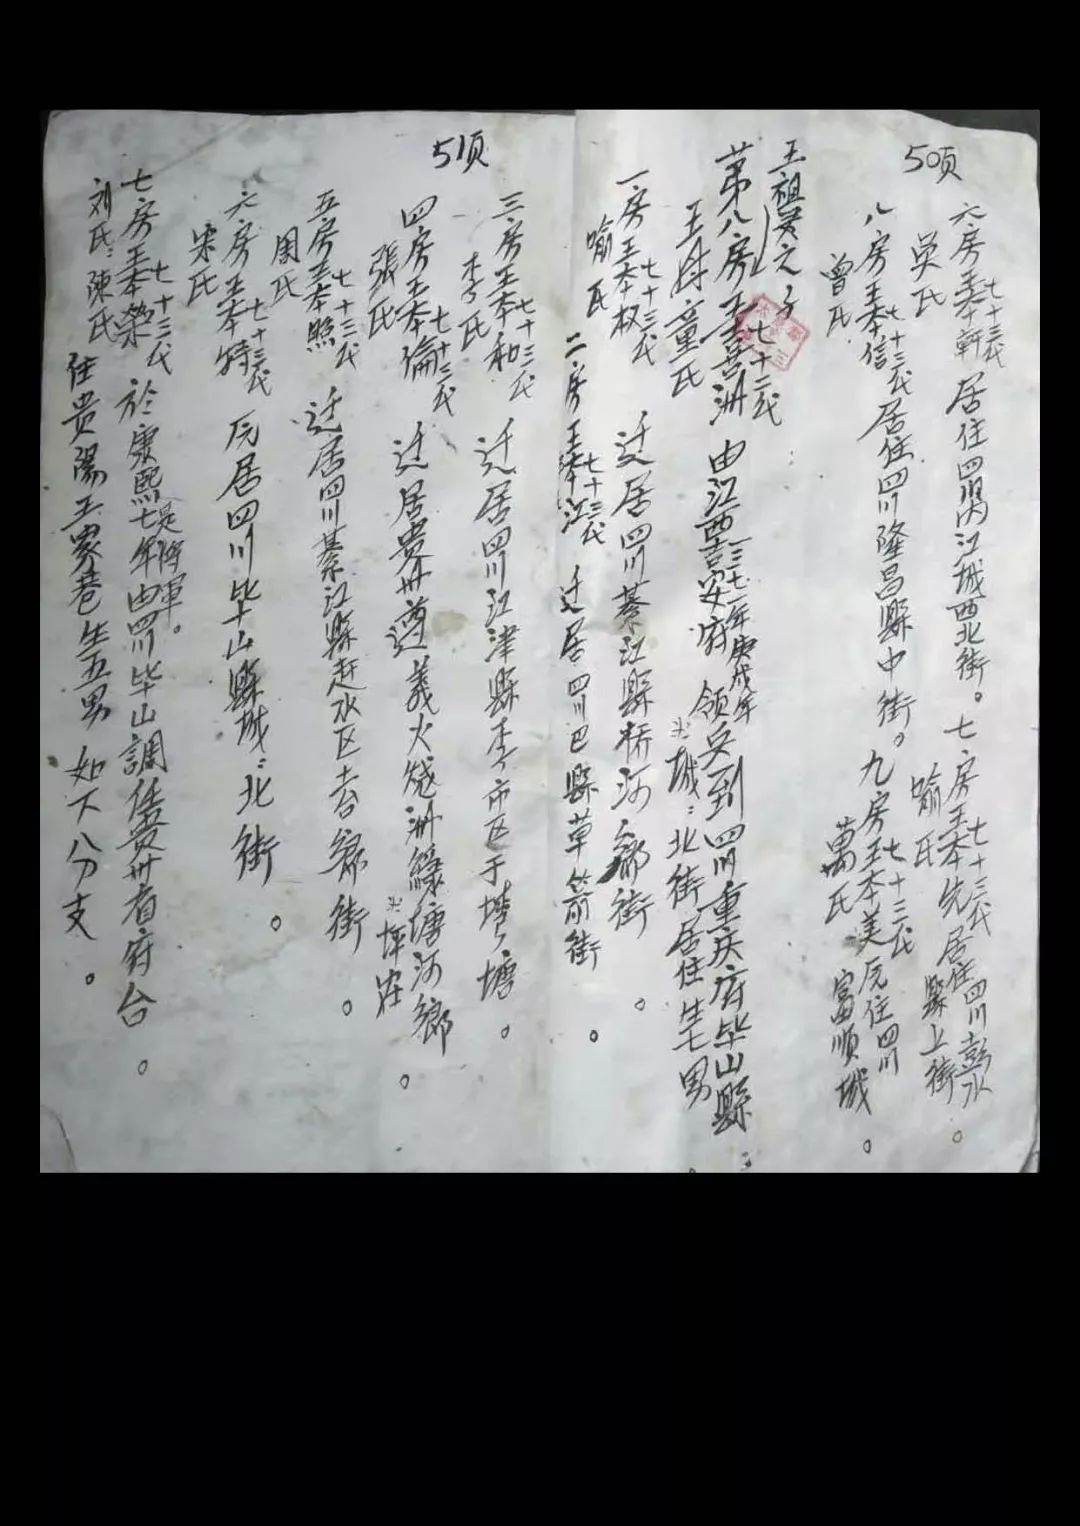 50页
六房王本軒 七十三代 居住四川内江城西北街。七房王本先 七十三代 居住四川彭水
吳氏 喻氏 縣上街。
八房王本信 七十三代 居住四川隆昌縣中街。九房王本美 七十三代 居住四川
曾氏 萬氏 富順城。
王祖賢之子
第八房王喜洲 七十二代 由江西吉安府 一三七一年庚戌年 領兵到四川重庆府毕山縣
王母童氏 城北街居住生七男
一房王本权 七十三代 迁居四川綦江縣桥河鄉街。
喻氏
二房王本江 七十三代 迁居四川巴縣草箭街。
51页
三房王本和 七十三代 迁居四川江津縣李市区于塘。
李氏
四房王本倫 七十三代 迁居贵州遵義火 洲緑塘河鄉
張氏 坪庄。
五房王本照 七十三代 迁居四川綦江縣赶水区去台鄉街。
周氏
六房王本特 七十三代 居四川毕山縣城北街。
宋氏
七房王本榮 七十三代 於康熙七年由四川毕山調任贵州省府台。
是将軍。
刘氏 陳氏 住贵陽王家巷生五男 如下八分支。